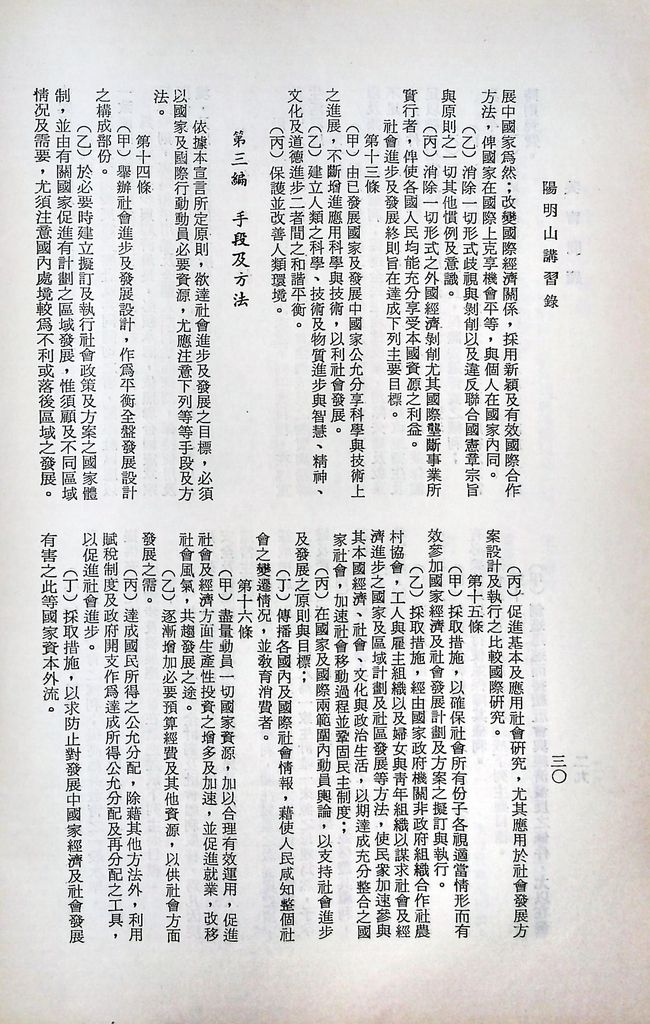 陽明山講習錄
三〇
展中國家爲然；改變國際經濟關係，採用新穎及有效國際合作
方法，俾國家在國際上克享機會平等，與個人在國家內同。
（乙）消除一切形式歧視與剝削以及違反聯合國憲章宗旨
與原則之一切其他慣例及意識。
（丙）消除一切形式之外國經濟剝削尤其國際壟斷事業所
實行者，俾使各國人民均能充分享受本國資源之利益。
社會進步及發展終則旨在達成下列主要目標。
第十三條
（甲）由已發展國家及發展中國家公允分享科學與技術上
之進展，不斷增進應用科學與技術，以利社會發展。
（乙）建立人類之科學、技術及物質進步與智慧、精神、
文化及道德進步二者間之和諧平衡。
（丙）保護並改善人類環境。
第三編　手段及方法
依據本宣言所定原則，欲達社會進步及發展之目標，必須
以國家及國際行動動員必要資源，尤應注意下列等等手段及方
法。
第十四條
（甲）舉辦社會進步及發展設計，作爲平衡全盤發展設計
之構成部份。
（乙）於必要時建立擬訂及執行社會政策及方案之國家體
制，並由有關國家促進有計劃之區域發展，惟須顧及不同區域
情况及需要，尤須注意國內處境較爲不利或落後區域之發展。
（丙）促進基本及應用社會研究，尤其應用於社會發展方
案設計及執行之比較國際研究。
第十五條
（甲）採取措施，以確保社會所有份子各視適當情形而有
效參加國家經濟及社會發展計劃及方案之擬訂與執行。
（乙）採取措施，經由國家政府機關非政府組織合作社農
村協會，工人與雇主組織以及婦女與青年組織以謀求社會及經
濟進步之國家及區域計劃及社區發展等方法，使民衆加速參與
其本國經濟、社會、文化與政治生活，以期達成充分整合之國
家社會，加速社會移動過程並鞏固民主制度；
（丙）在國家及國際兩範圍內動員輿論，以支持社會進步
及發展之原則與目標；
（丁）傳播各國內及國際社會情報，藉使人民咸知整個社
會之變遷情況，並敎育消費者。
第十六條
（甲）盡量動員一切國家資源，加以合理有效運用，促進
社會及經濟方面生產性投資之增多及加速，並促進就業，改移
社會風氣，共趨發展之途。
（乙）逐漸增加必要預算經費及其他資源，以供社會方面
發展之需。
（丙）達成國民所得之公允分配，除藉其他方法外，利用
賦稅制度及政府開支作爲達成所得公允分配及再分配之工具，
以促進社會進步。
（丁）採取措施，以求防止對發展中國家經濟及社會發展
有害之此等國家資本外流。